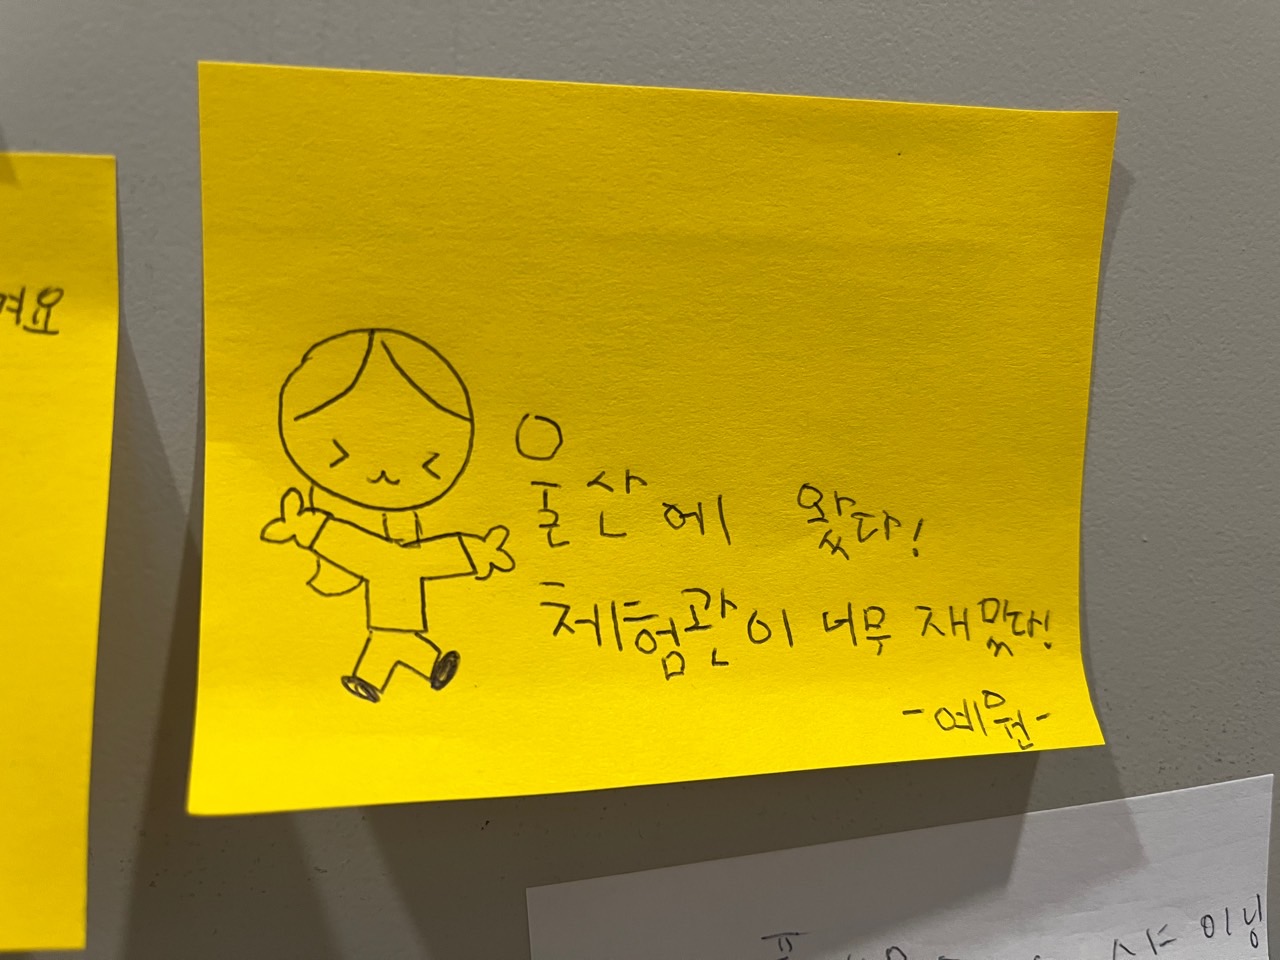 울산에 왔다!
체험관이 너무 재밌다!
-예원-
이닝